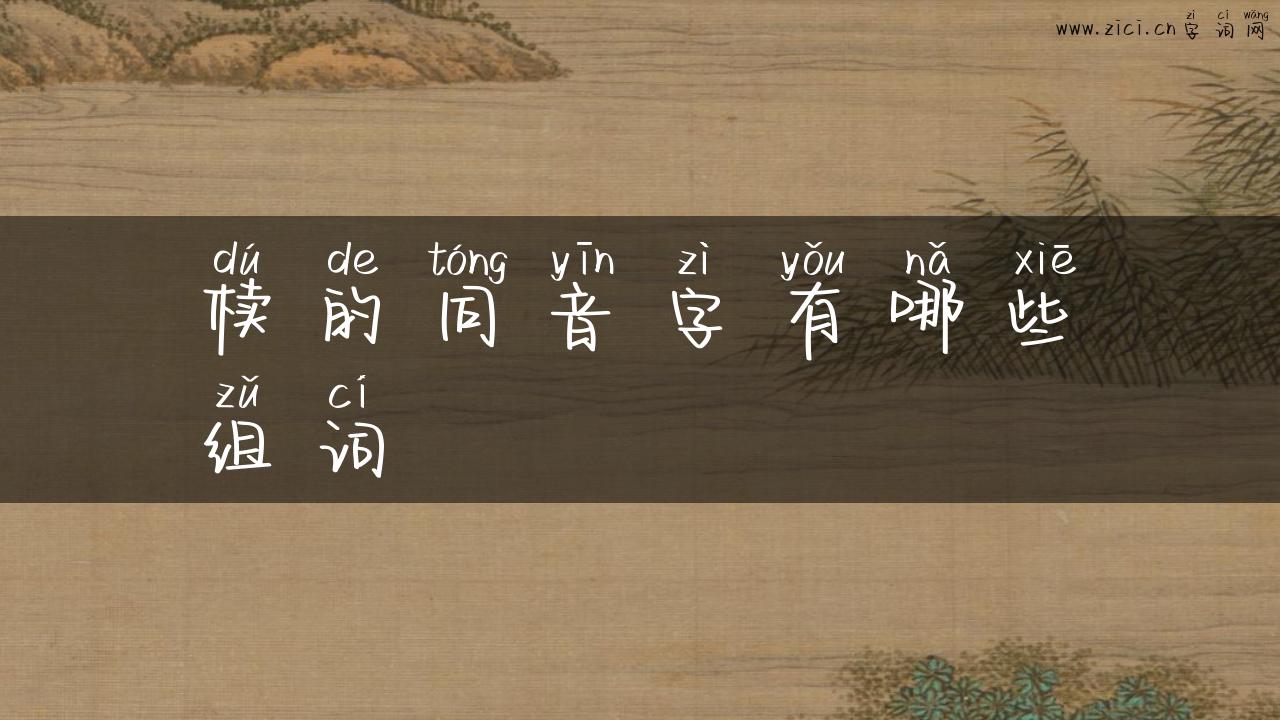 zì cí wǎng
www.zici.cn 字 词 网
dú de tóng yīn zì yǒu nǎ xiē
椟 的 同 音 字 有 哪 些
zǔ cí
组 词